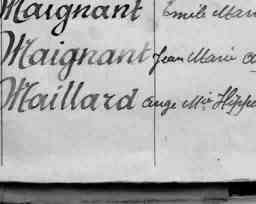 Maignant Emile Mari
Maignant Jean Marie
Maillard Ange Mie Hippo